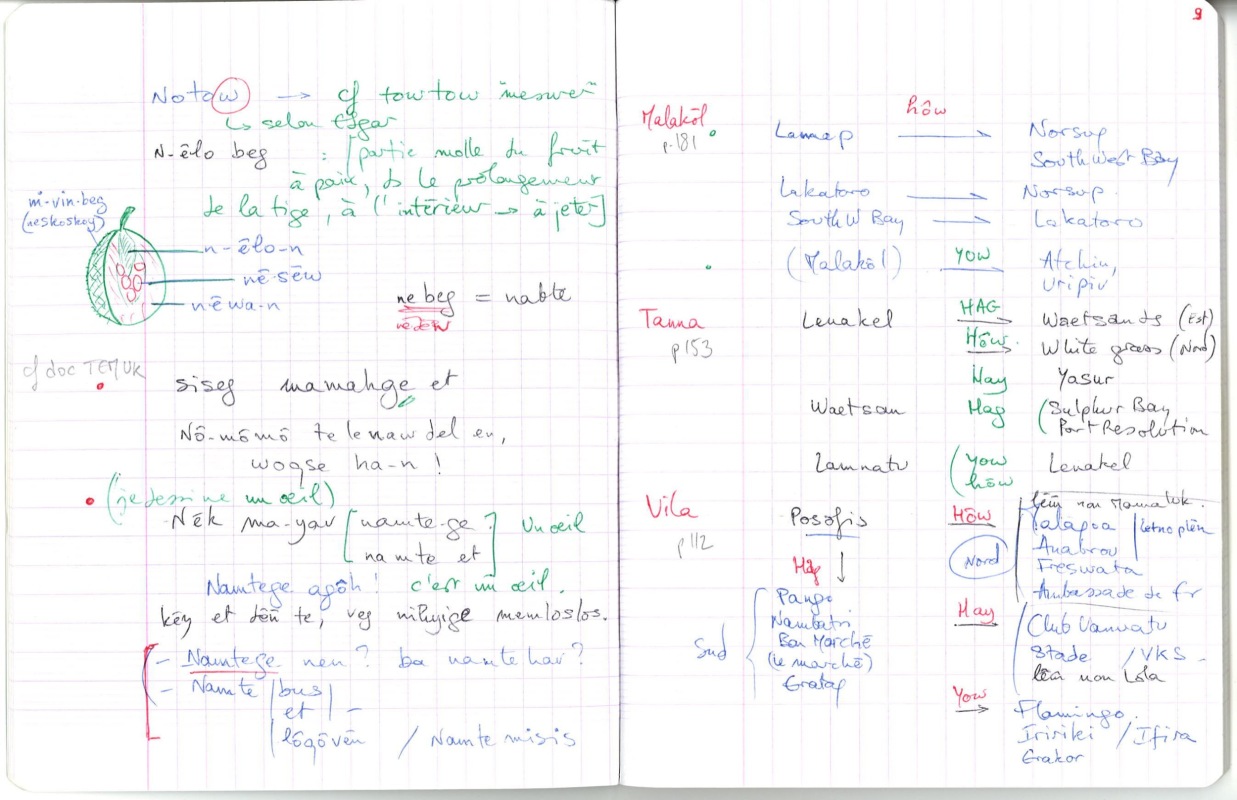 Notow → cf towtow "mesurer"
↳ selon Edgar
N-ēlo beg : [partie molle du fruit
à pain, ds le prolongement
de la tige, à l'intérieur → à jeter]
m̄-vin-beg
(neskoskoy)
n-ēlo-n
nē-sēw
nēwa-n
ne beg = nabte
nēdēw
cf doc TEMUK
siseg mamahge et
Nô-mômô te lenaw del en,
woqse ha-n !
(je dessine un œil)
Nēk ma-yav [namte-ge] Un œil
namte et
Namtege agōh ! c'est un œil.
kēy et dēn te, veg nihyige memloslos.
- Namtege nen ? ba namte hav ?
- Namte bus
et -
lōgōvēn / Namte misis
9
Malakōl
p. 181
hôw
Lamap → Norsup
South West Bay
Lakatoro → Norsup
South W Bay → Lakatoro
(Malakōl) YOW → Atchin,
Uripiv
Tanna
p 153
Lenakel HAG → Waetsands (Est)
Hôw → White grass (Nord)
Hay Yasur
Waetsan Hag (Sulphur Bay
Port Resolution
Lamnatu (yow Lenakel
hôw
Vila
p 112
Posofis Hôw
Nord
lēm̄ non Mamaluk.
Talapoa letnoplēn
Anabrou
Freswata
Ambassade de fr
Hag ↓
Sud
Pango
Nambatri
Bon Marché
(le marché)
Eratap
Hay
Club Vanuatu
Stade / VKS
lēm̄ non Lola
Yow →
Flamingo.
Iririki / Ifira
Erakor